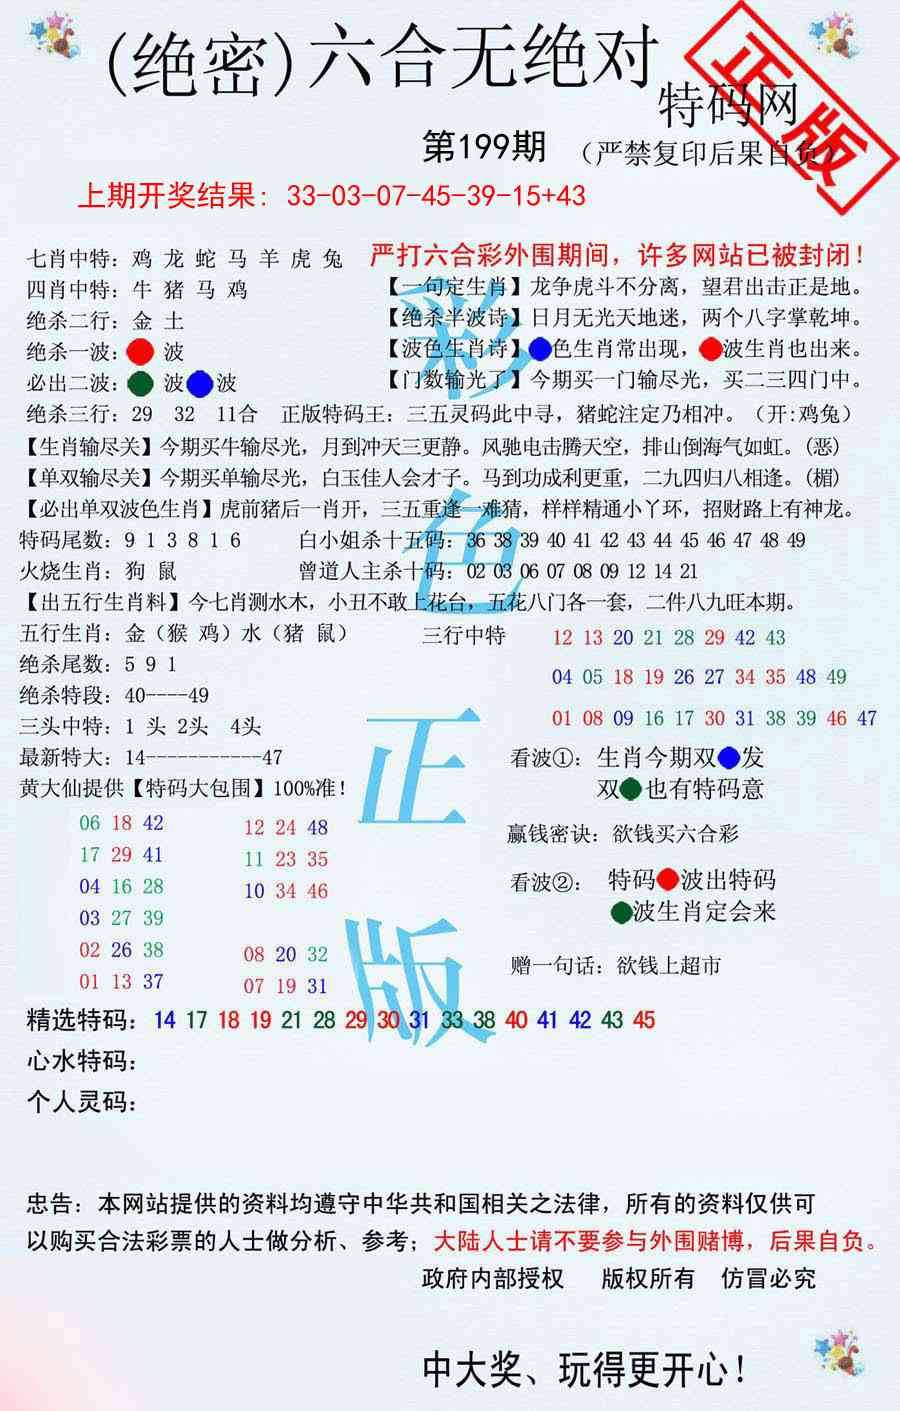 (绝密)六合无绝对
特码网
正版
第199期 （严禁复印后果自负）
上期开奖结果: 33-03-07-45-39-15+43
七肖中特: 鸡 龙 蛇 马 羊 虎 兔
严打六合彩外围期间，许多网站已被封闭！
四肖中特: 牛 猪 马 鸡
【一句定生肖】龙争虎斗不分离，望君出击正是地。
绝杀二行: 金 土
【绝杀半波诗】日月无光天地迷，两个八字掌乾坤。
绝杀一波: 波
【波色生肖诗】 色生肖常出现， 波生肖也出来。
必出二波: 波 波
【门数输光了】今期买一门输尽光，买二三四门中。
绝杀三行: 29 32 11合 正版特码王: 三五灵码此中寻，猪蛇注定乃相冲。（开:鸡兔）
【生肖输尽关】今期买牛输尽光，月到冲天三更静。风驰电击腾天空，排山倒海气如虹。(恶)
【单双输尽关】今期买单输尽光，白玉佳人会才子。马到功成利更重，二九四归八相逢。(楣)
【必出单双波色生肖】虎前猪后一肖开，三五重逢一难猜，样样精通小丫环，招财路上有神龙。
特码尾数: 9 1 3 8 1 6 白小姐杀十五码: 36 38 39 40 41 42 43 44 45 46 47 48 49
火烧生肖: 狗 鼠 曾道人主杀十码: 02 03 06 07 08 09 12 14 21
【出五行生肖料】今七肖测水木，小丑不敢上花台，五花八门各一套，二件八九旺本期。
五行生肖: 金（猴 鸡）水（猪 鼠） 三行中特 12 13 20 21 28 29 42 43
绝杀尾数: 5 9 1
04 05 18 19 26 27 34 35 48 49
绝杀特段: 40----49
01 08 09 16 17 30 31 38 39 46 47
三头中特: 1 头 2头 4头
最新特大: 14-----------47
看波①: 生肖今期双 发
双 也有特码意
黄大仙提供【特码大包围】100%准！
06 18 42 12 24 48
赢钱密诀: 欲钱买六合彩
17 29 41 11 23 35
04 16 28 10 34 46
看波②: 特码 波出特码
波生肖定会来
03 27 39
02 26 38 08 20 32
赠一句话: 欲钱上超市
01 13 37 07 19 31
精选特码: 14 17 18 19 21 28 29 30 31 33 38 40 41 42 43 45
心水特码:
个人灵码:
彩色正版
忠告: 本网站提供的资料均遵守中华共和国相关之法律，所有的资料仅供可
以购买合法彩票的人士做分析、参考；大陆人士请不要参与外围赌博，后果自负。
政府内部授权 版权所有 仿冒必究
中大奖、玩得更开心！